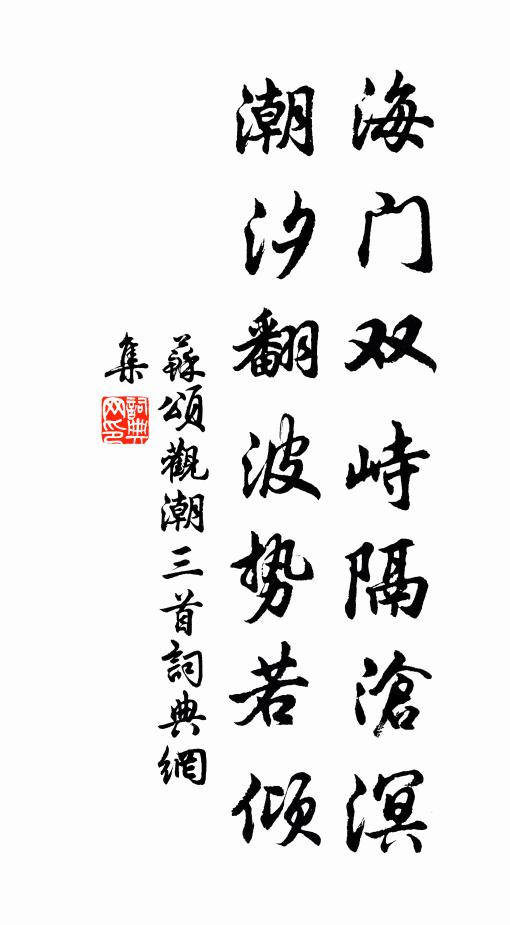 海门双峙隔滄溟
潮汐翻波势若倾
蘇頌觀潮三首詞典網
集
詞典
网印